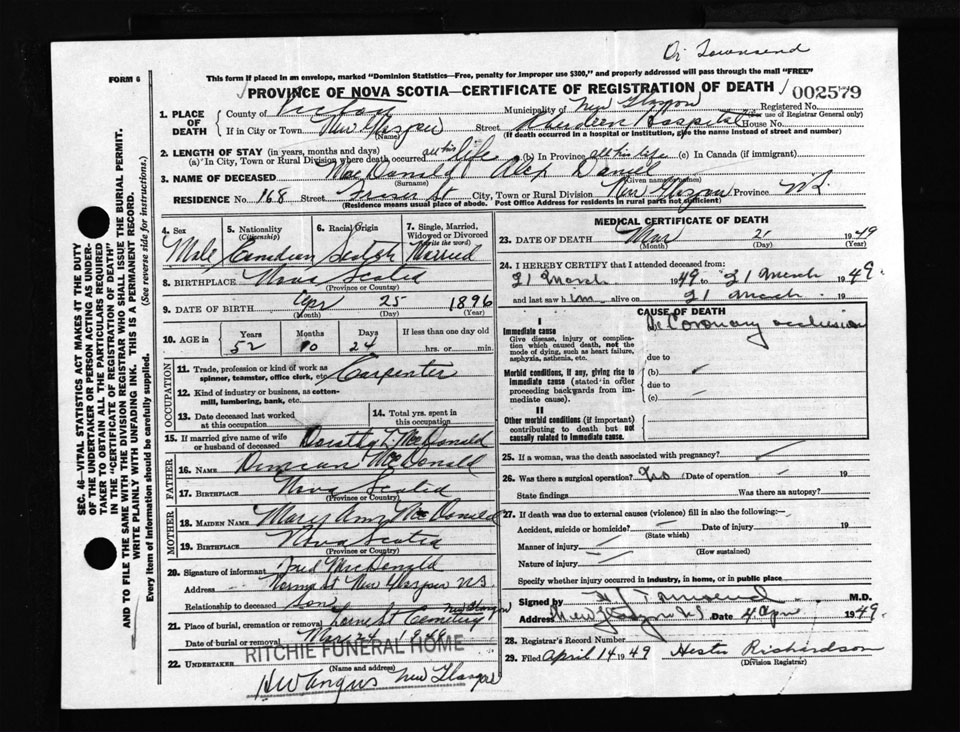 Dr Townsend
FORM 6
This form if placed in an envelope, marked "Dominion Statistics—Free, penalty for improper use $300," and properly addressed will pass through the mail "FREE"
PROVINCE OF NOVA SCOTIA—CERTIFICATE OF REGISTRATION OF DEATH 002579
1. PLACE OF DEATH County of Municipality of New Glasgow Registered No.
(For use of Registrar General only)
If in City or Town New Glasgow Street Aberdeen Hospital House No.
(Name) (If death occurred in a hospital or institution, give the name instead of street and number)
2. LENGTH OF STAY (in years, months and days)
(a) In City, Town or Rural Division where death occurred all his life (b) In Province all his life (c) In Canada (if immigrant)
3. NAME OF DECEASED MacDonald Alex Daniel
(Surname) (Given name or names)
RESIDENCE No. 168 Street St City, Town or Rural Division New Glasgow Province N.S.
(Residence means usual place of abode. Post Office Address for residents in rural parts not sufficient)
4. Sex Male
5. Nationality (Citizenship) Canadian
6. Racial Origin Scotch
7. Single, Married, Widowed or Divorced (Write the word) Married
8. BIRTHPLACE Nova Scotia
(Province or Country)
9. DATE OF BIRTH Apr 25 1896
(Month) (Day) (Year)
10. AGE in Years 52 Months 10 Days 24 If less than one day hrs. or min.
OCCUPATION
11. Trade, profession or kind of work as spinner, teamster, office clerk, etc. Carpenter
12. Kind of industry or business, as cotten-mill, lumbering, bank, etc.
13. Date deceased last worked at this occupation
14. Total yrs. spent in this occupation
15. If married give name of wife or husband of deceased Dorothy T. MacDonald
FATHER
16. NAME Duncan MacDonald
17. BIRTHPLACE Nova Scotia
(Province or Country)
MOTHER
18. MAIDEN NAME Mary Amy MacDonald
19. BIRTHPLACE Nova Scotia
(Province or Country)
20. Signature of informant MacDonald
Address St New Glasgow N.S.
Relationship to deceased son
21. Place of burial, cremation or removal Lorne St Cemetery New Glasgow
Date of burial or removal Mar 24
RITCHIE FUNERAL HOME
22. UNDERTAKER
(Name and address)
HW Angus New Glasgow
MEDICAL CERTIFICATE OF DEATH
23. DATE OF DEATH Mar 21 1949
(Month) (Day) (Year)
24. I HEREBY CERTIFY that I attended deceased from:
21 March 1949 to 21 March 1949.
and last saw him alive on 21 March 19
CAUSE OF DEATH
I
Immediate cause
Give disease, injury or complication which caused death, not the mode of dying, such as heart failure, asphyxia, asthenia, etc.
Coronary occlusion
due to
Morbid conditions, if any, giving rise to immediate cause (stated in order proceeding backwards from immediate cause).
(b)
due to
(c)
II
Other morbid conditions (if important) contributing to death but not causally related to immediate cause.
25. If a woman, was the death associated with pregnancy?
26. Was there a surgical operation? No Date of operation 19
State findings Was there an autopsy?
27. If death was due to external causes (violence) fill in also the following:—
Accident, suicide or homicide? Date of injury 19
(State which)
Manner of injury
(How sustained)
Nature of injury
Specify whether injury occurred in industry, in home, or in public place
Signed by Townsend M.D.
Address New Glasgow N.S. Date 4 Apr 1949
28. Registrar's Record Number
29. Filed April 14 1949 Hester Richardson
(Division Registrar)
SEC. 46—VITAL STATISTICS ACT MAKES IT THE DUTY
OF THE UNDERTAKER OR PERSON ACTING AS UNDER-
TAKER TO OBTAIN ALL THE PARTICULARS REQUIRED
IN THE "CERTIFICATE OF REGISTRATION OF DEATH"
AND TO FILE THE SAME WITH THE DIVISION REGISTRAR WHO SHALL ISSUE THE BURIAL PERMIT.
WRITE PLAINLY WITH UNFADING INK. THIS IS A PERMANENT RECORD.
Every item of information should be carefully supplied. (See reverse side for instructions.)